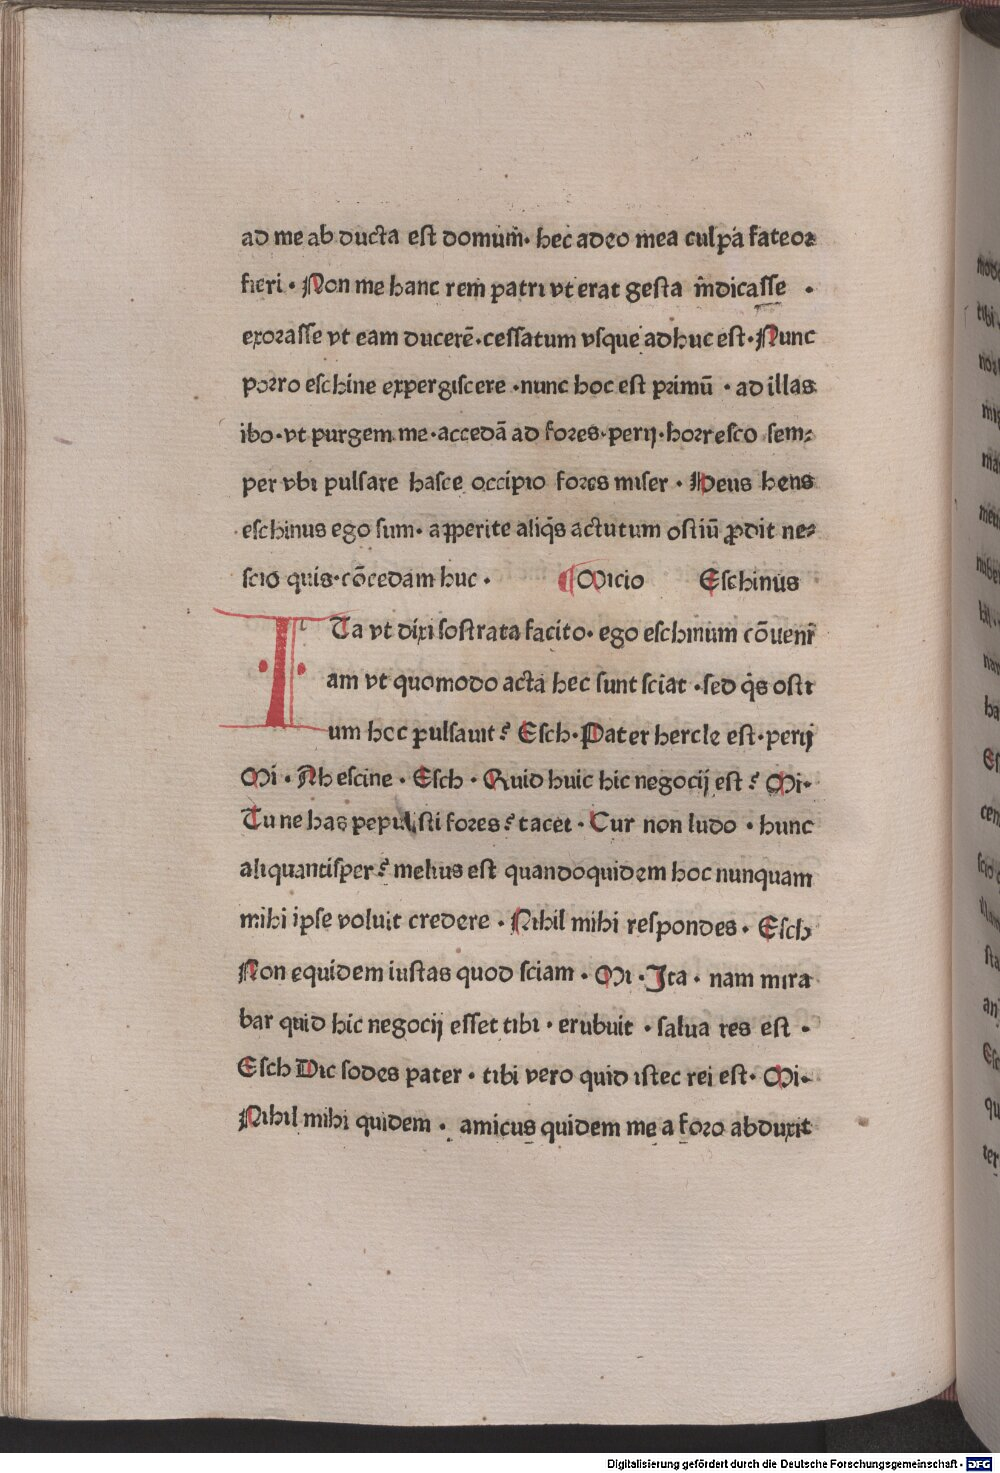 ad me ab ducta est domum̄· hec adeo mea culpa fateor
fieri · Non me hanc rem patri vt erat gesta m̄dicasse ·
exorasse vt eam ducerē·cessatum vsque adhuc est·Nunc
porro eschine expergiscere ·nunc hoc est primū · ad illas
ibo·vt purgem me·accedā ad fores·perij·horresco sem⸗
per vbi pulsare hasce occipio fores miser · Heus hens
eschinus ego sum· apperite aliq̄s actutum ostiū ꝓdit ne⸗
scio quis·cōcedam huc · Micio Eschinus
I Ta vt dixi sostrata facito· ego eschinum cōuenī
am vt quomodo acta hec sunt sciat ·sed q̄s osti
um hoc pulsauit? Esch·Pater hercle est·perij
Mi · Ah escine · Esch · Quid huic hic negocij est ? Mi·
Tu ne has pepulisti fores? tacet · Cur non ludo · hunc
aliquantisper? melius est quandoquidem hoc nunquam
mihi ipse voluit credere · Nihil mihi respondes · Esch
Non equidem iustas quod sciam · Mi ·Ita · nam mira
bar quid hic negocij esset tibi · erubuit · salua res est ·
Esch Dic sodes pater · tibi vero quid istec rei est· Mi·
Nihil mihi quidem · amicus quidem me a foro abduxit
Digitalisierung gefördert durch die Deutsche Forschungsgemeinschaft - DFG